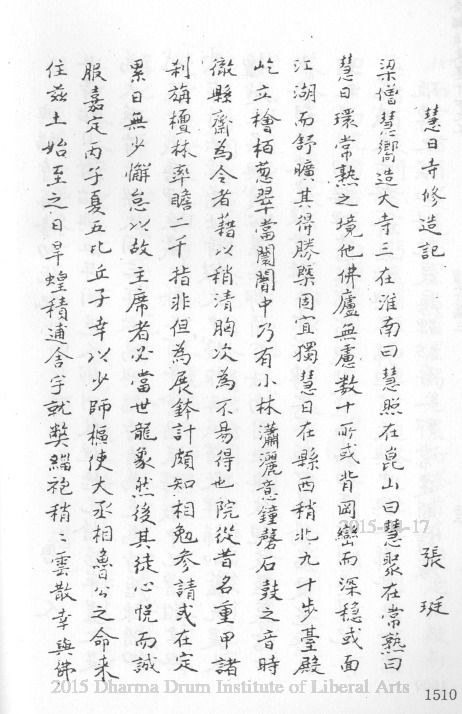 慧日寺修造記
張珽
梁僧慧嚮造大寺三在淮南曰慧照在崑山曰慧聚在常熟曰
慧日環常熟之境他佛廬無慮數十所或背岡巒而深穩或面
江湖而舒曠其得勝槩固宜獨慧日在縣西稍北九十步臺殿
屹立檜栢葱翠當闤闠中乃有小林瀟灑意鐘磬石鼓之音時
徹縣齋為令者藉以稍清胸次為不易得也院從昔名重甲諸
刹旃檀林率瞻二千指非但為展鉢計頗知相勉参請或在定
累日無少懈怠以故主席者必當世龍象然後其徒心悅而誠
服嘉定丙子夏五比丘子幸以少師樞使大丞相魯公之命来
住茲土始至之日旱蝗積逋舍宇就獘緇袍稍〻雲散幸與佛
2015-09-17
2015 Dharma Drum Institute of Liberal Arts
1510